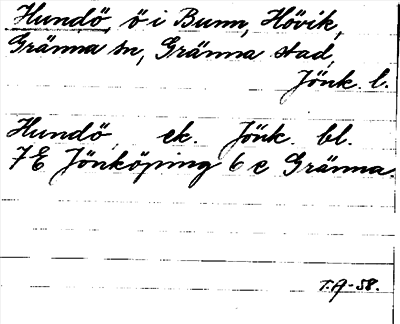 Hundö, ö i Bunn, Hövik,
Gränna sn, Gränna stad,
Jönk. l.
Hundö ek. Jönk. bl.
7E Jönköping 6 e Gränna.
T.A-58.